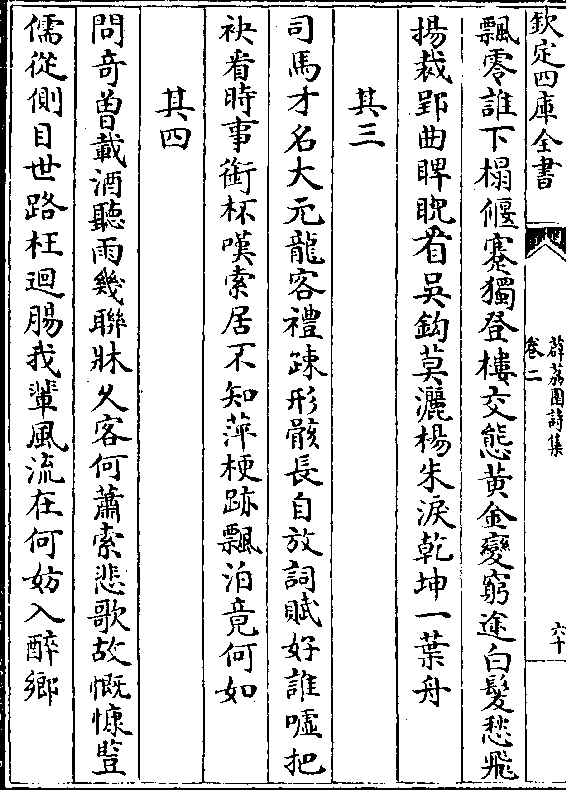 欽定四庫全書
薜荔園詩集
卷二
六十
飄零誰下榻偃蹇獨登樓交態黄金變窮途白髪愁飛
揚裁郢曲睥睨看吳鈎莫灑楊朱淚乾坤一葉舟
其三
司馬才名大元龍客禮疎形骸長自放詞賦好誰嘘把
袂看時事銜杯嘆索居不知萍梗跡飄泊竟何如
其四
問奇曽載酒聽雨幾聯牀久客何蕭索悲歌故慨慷豎
儒從側目世路枉迴腸我輩風流在何妨入醉鄉